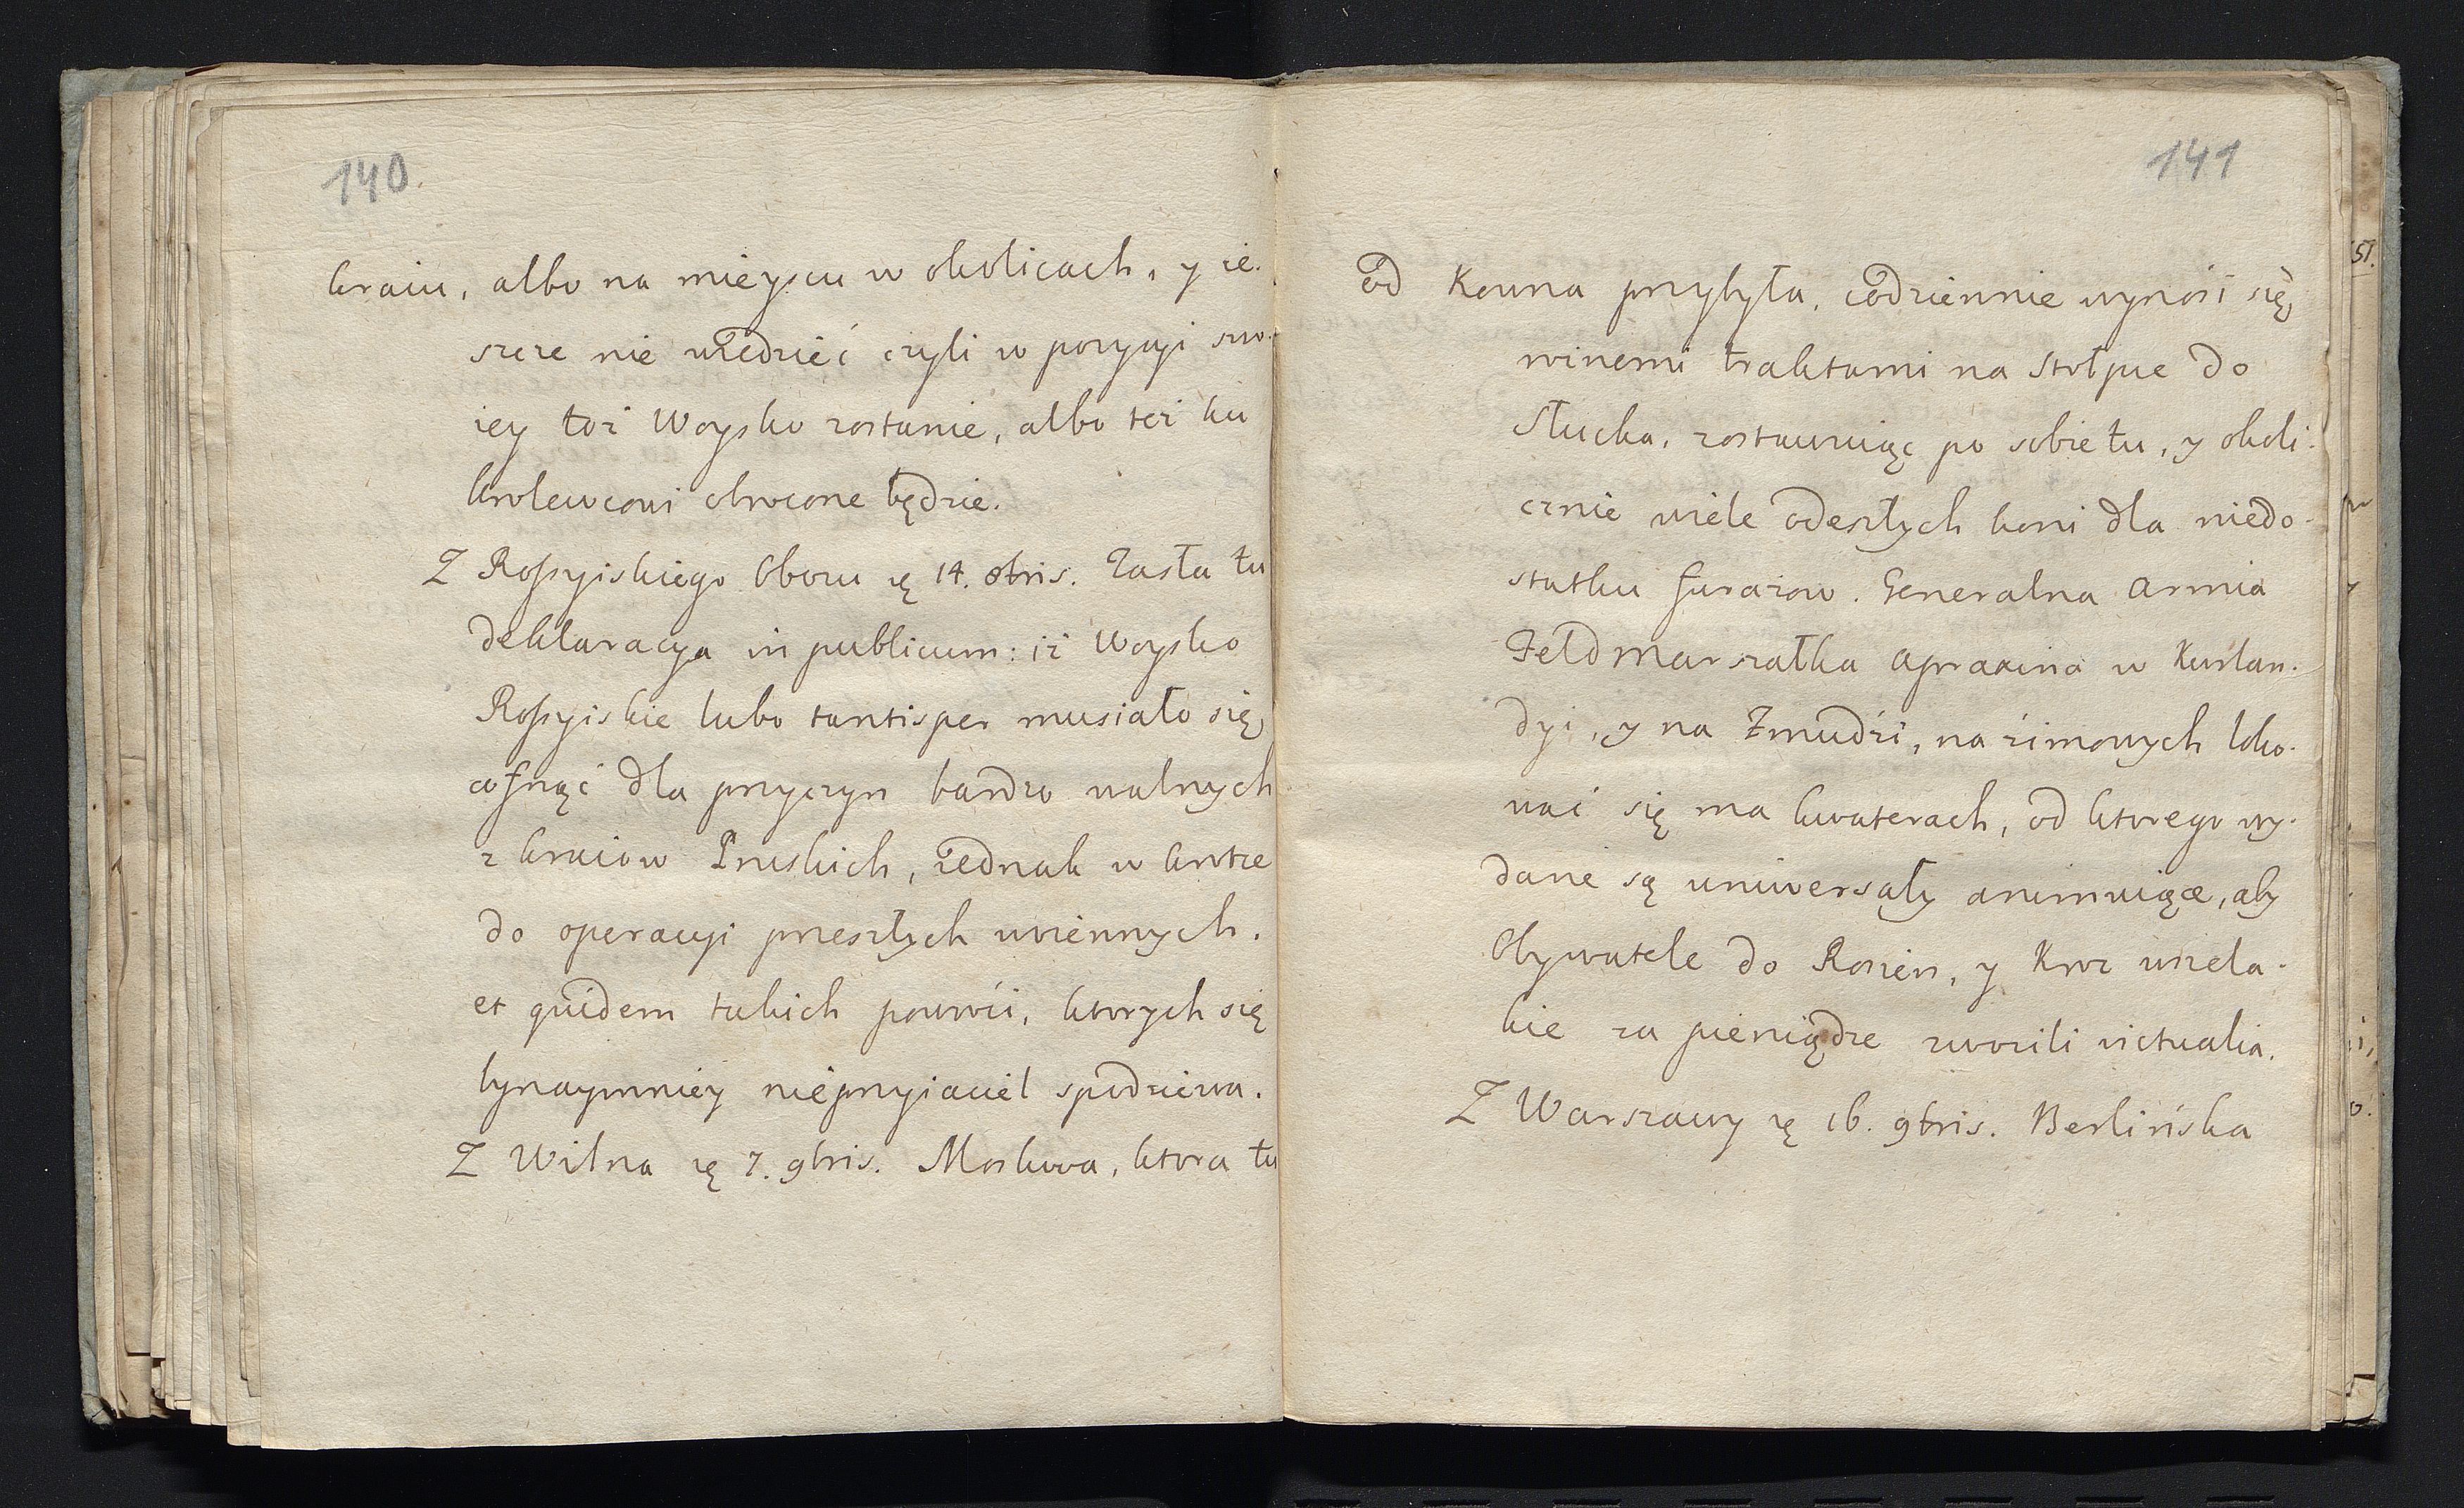 140.
kraiu, albo na mieyscu w okolicach, y ie-
szcze nie wiedzieć czyli w pozycyi swo-
iey toż Woysko zostanie, albo też ku
krolewcowi obrocone będzie.
Z Rossyiskiego Obozu 14. 8bris. Zaszła tu
deklaracya in publicum: iż Woysko
Rossyiskie lubo tantisper musiało się
cofnąć dla przyczyn bardzo walnych
z kraiow Pruskich, iednak w krotce
do operacyi przeszłych woiennych.
et quidem takich powróci, ktorych się
bynaymniey nieprzyiaciel spodziewa.
Z Wilna 7. 9bris. Moskwa, ktora tu
141
od Kowna przybyła, codziennie wynosi się
roznemi traktami na Stołpce do
Słucka, zostawuiąc po sobie tu, y okoli-
cznie wiele odeszłych koni dla niedo-
statku furażow. Generalna armia
Feldmarszałka Apraxina w Kurlan-
dyi, y na Żmudźi, na źimowych loko-
wać się ma kwaterach, od ktorego wy-
dane są uniwersały animuiące, aby
Obywatele do Rosień, y Kroż wszela-
kie za pieniądze zwozili victualia.
Z Warszawy 16. 9bris. Berlińska
51.